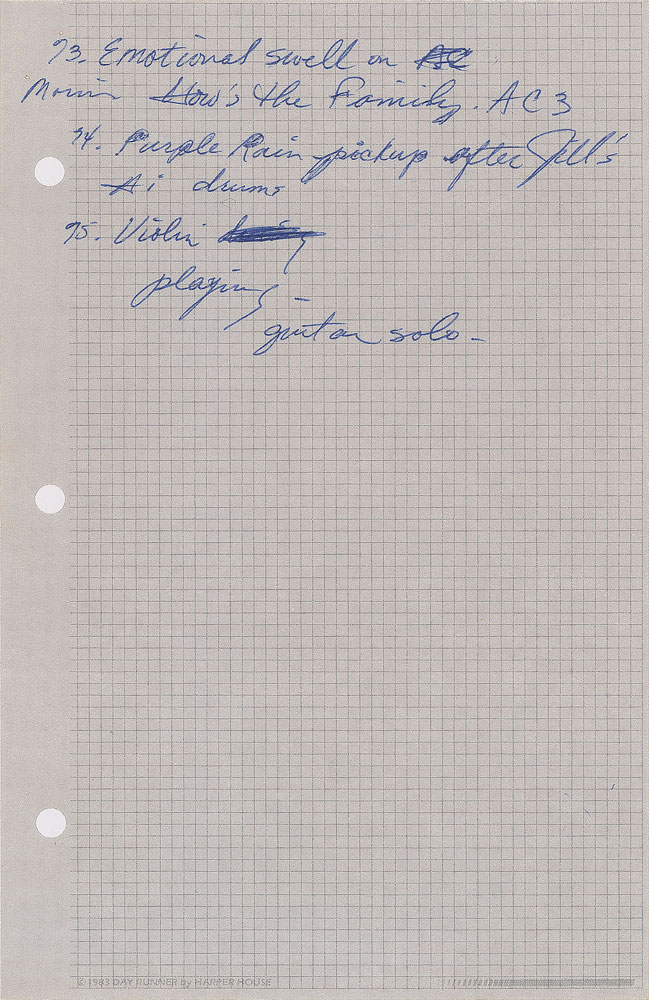 73. Emotional swell on
Morris How's the Family. AC3
74. Purple Rain pickup after Jill's
Ai drums
75. Violin
playing -
guitar solo -
© 1983 DAY RUNNER by HARPER HOUSE